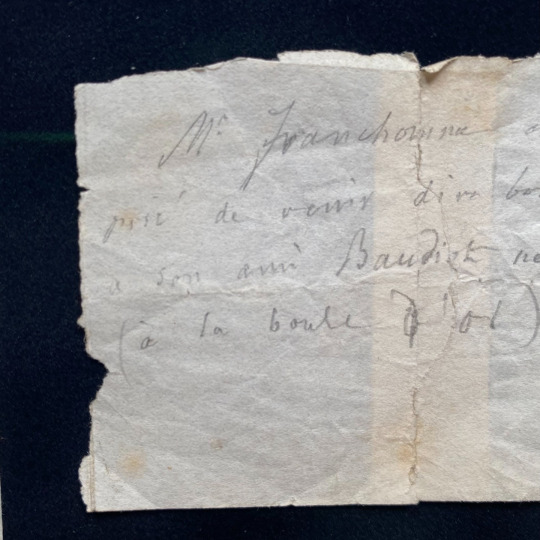 Mr Franchomme
prié de venir dire
a son ami Baudiot
(à la boule d'or)